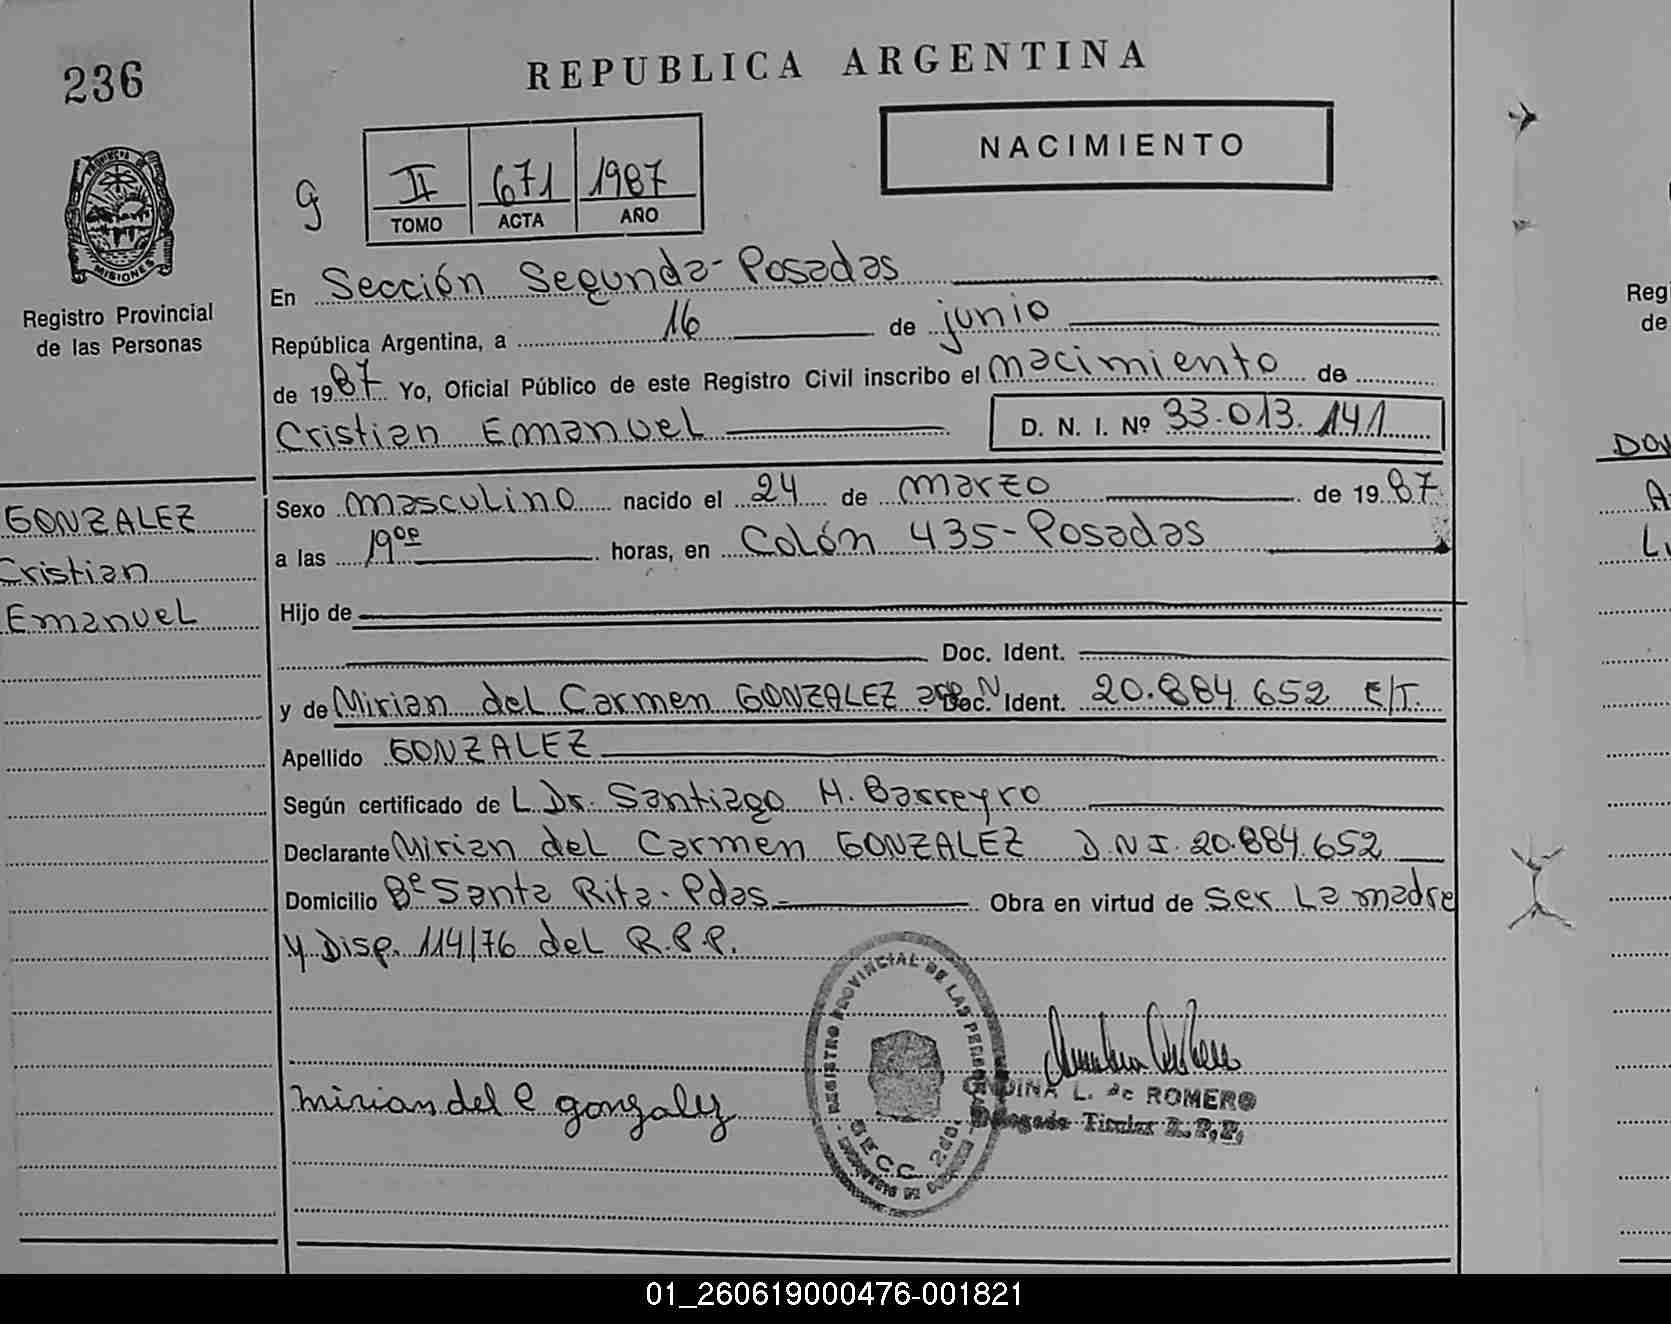 236
REPUBLICA ARGENTINA
NACIMIENTO
g
II 671 1987
TOMO ACTA AÑO
PROVINCIA DE
MISIONES
Registro Provincial
de las Personas
En Sección Segunda - Posadas
República Argentina, a 16 de junio
de 1987 Yo, Oficial Público de este Registro Civil inscribo el nacimiento de
Cristian Emanuel D. N. I. Nº 33.013.141
GONZALEZ
Cristian
Emanuel
Sexo masculino nacido el 24 de marzo de 1987
a las 19 horas, en Colón 435 - Posadas
Hijo de
Doc. Ident.
y de Mirian del Carmen GONZALEZ Doc. Ident. 20.884.652 E/T.
Apellido GONZALEZ
Según certificado de L. Dr. Santiago H. Barreyro
Declarante Mirian del Carmen GONZALEZ D.N.I. 20.884.652
Domicilio Bº Santa Rita - Pdas. Obra en virtud de ser La madre
y Disp. 114/76 del R.P.P.
REGISTRO PROVINCIAL DE LAS
SECC. 2da.
mirian del C gonzalez
L. de ROMERO
Delegada Titular R.P.P.
Reg
de
A
01_260619000476-001821